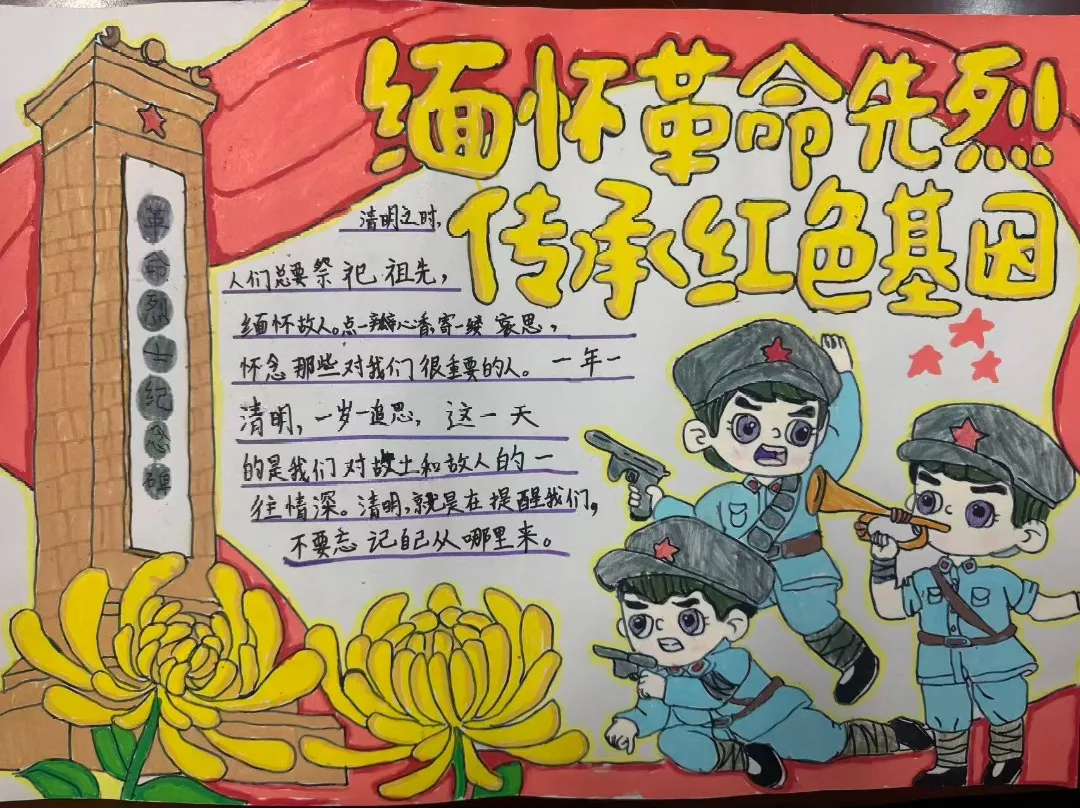 缅怀革命先烈
传承红色基因
革命烈士纪念碑
清明之时,
人们总要祭祀祖先,
缅怀故人。点一瓣心香,寄一缕哀思,
怀念那些对我们很重要的人。一年一
清明,一岁一追思,这一天
的是我们对故土和故人的一
往情深。清明,就是在提醒我们,
不要忘记自己从哪里来。